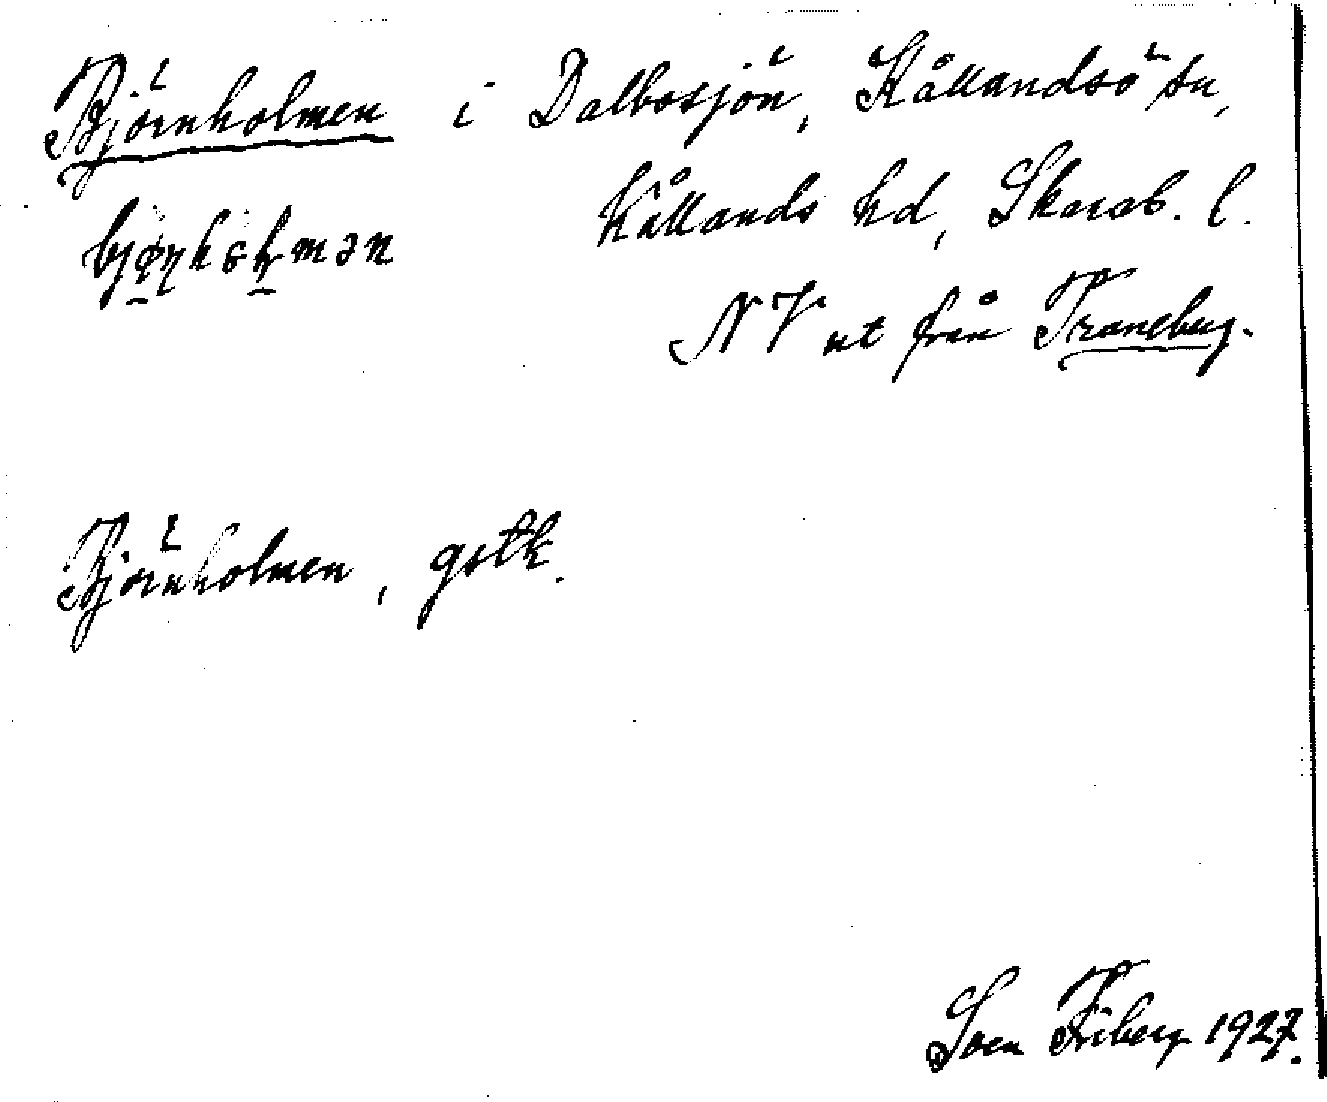 Björnholmen i Dalbosjön, Kållandsö sn,
Kållands hd, Skarab. l.
NV ut från Traneberg.
Björnholmen, gstk.
Sven Friberg 1927.